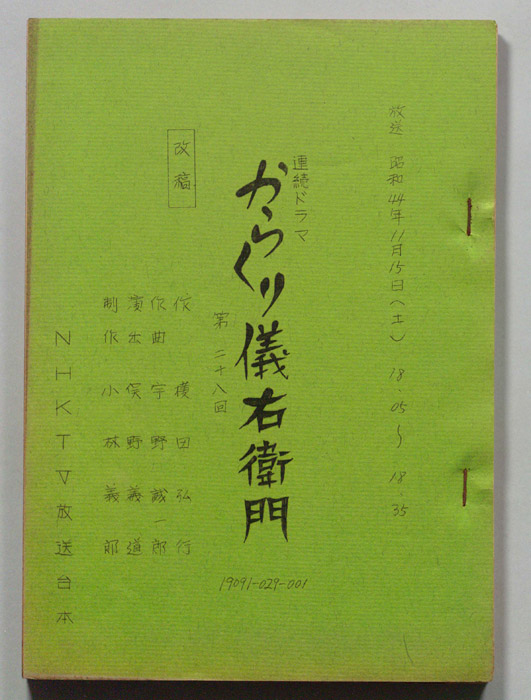 放送 昭和44年11月15日(土) 18.05〜18.35
連続ドラマ
からくり儀右衛門
第二十八回
改稿
作 横田弘行
作曲 宇野誠一郎
演出 俣野義道
制作 小林義郎
NHKTV放送台本
19091-029-001